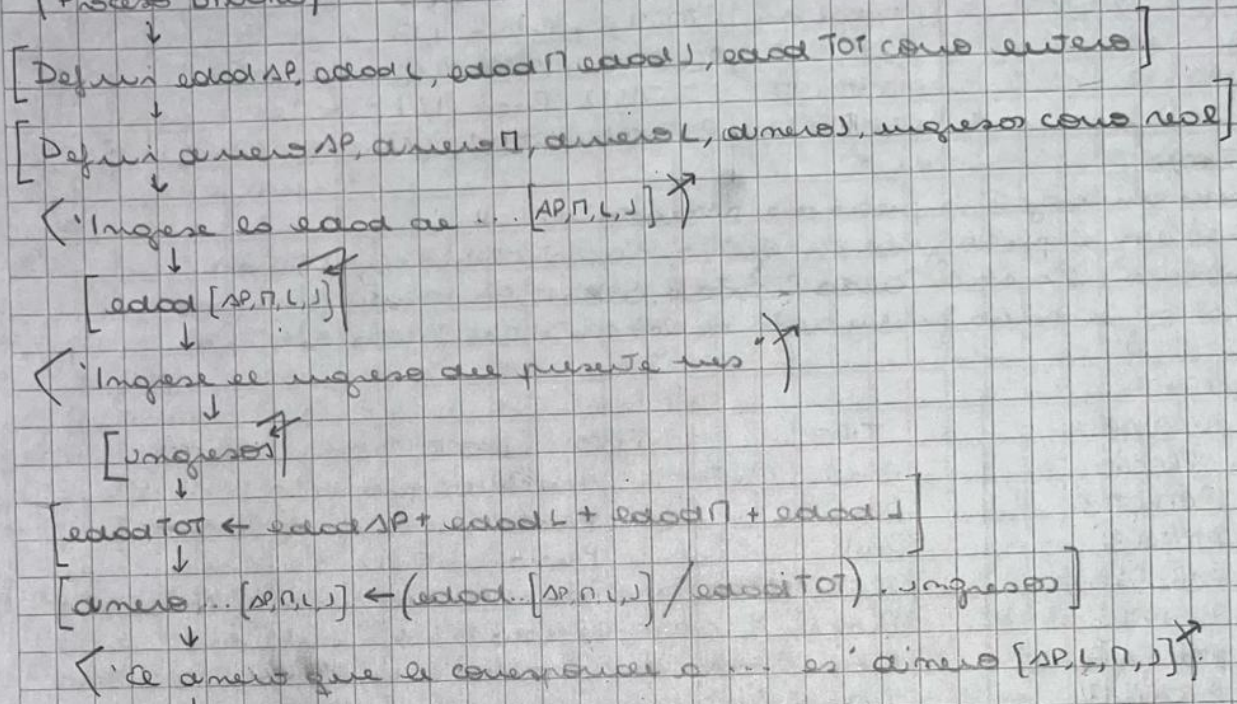 [Definir edadAP, edadL, edadM edadJ, edad TOT como entero]
[Definir dineroAP, dineroM, dineroL, dineroJ, ingresos como real]
"Ingrese la edad de ... [AP,M,L,J]
[edad [AP,M,L,J]]
"Ingrese el ingreso del presente mes"
[ingresos]
[edadTOT ← edadAP + edadL + edadM + edadJ]
[dinero ... [AP,M,L,J] ← (edad.. [AP,M,L,J] / edadTOT) . ingresos]
"El dinero que le corresponde a ... es" dinero [AP,L,M,J]